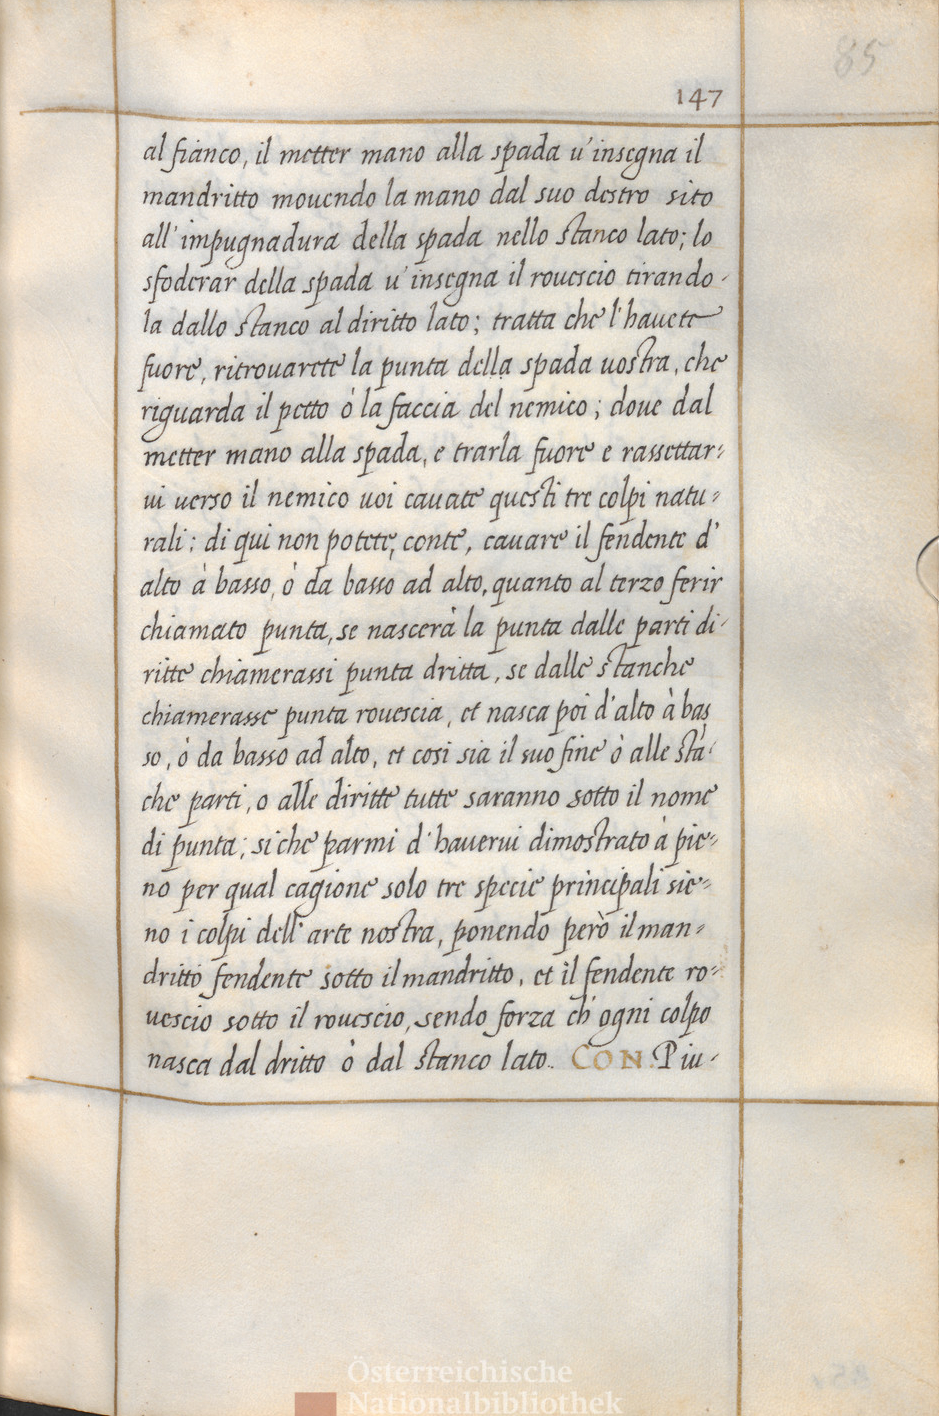 85
147
al fianco, il metter mano alla spada u'insegna il
mandritto mouendo la mano dal suo destro sito
all'impugnadura della spada nello stanco lato; lo
sfoderar della spada u'insegna il rouescio tirando-
la dallo stanco al diritto lato; tratta che l'hauete
fuore, ritrouarete la punta della spada uostra, che
riguarda il petto ò la faccia del nemico; doue dal
metter mano alla spada, e trarla fuore e rassettar-
ui uerso il nemico uoi cauate questi tre colpi natu-
rali; di qui non potete, conte, cauare il fendente d'
alto à basso, ò da basso ad alto, quanto al terzo ferir
chiamato punta, se nascerà la punta dalle parti di-
ritte chiamerassi punta dritta, se dalle stanche
chiamerasse punta rouescia, et nasca poi d'alto à bas
so, ò da basso ad alto, et cosi sia il suo fine ò alle stā-
che parti, o alle diritte tutte saranno sotto il nome
di punta; si che parmi d'hauerui dimostrato à pie-
no per qual cagione solo tre specie principali sie-
no i colpi dell'arte nostra, ponendo però il man-
dritto fendente sotto il mandritto, et il fendente ro-
uescio sotto il rouescio, sendo forza ch'ogni colpo
nasca dal dritto ò dal stanco lato. CON. Piu-
Österreichische
Nationalbibliothek